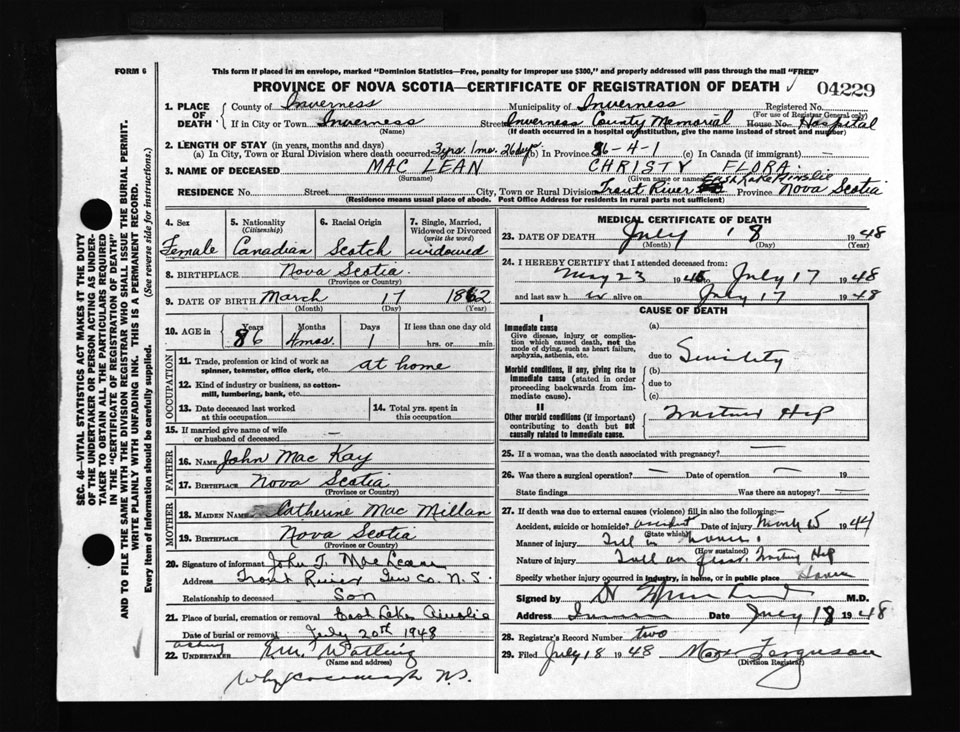 FORM 6
This form if placed in an envelope, marked "Dominion Statistics—Free, penalty for improper use $300," and properly addressed will pass through the mail "FREE"
PROVINCE OF NOVA SCOTIA—CERTIFICATE OF REGISTRATION OF DEATH 04229
1. PLACE OF DEATH County of Inverness Municipality of Inverness Registered No.
(For use of Registrar General only)
If in City or Town Inverness Street Inverness County Memorial House No. Hospital
(Name) (If death occurred in a hospital or institution, give the name instead of street and number)
2. LENGTH OF STAY (in years, months and days)
(a) In City, Town or Rural Division where death occurred 3yrs. 1mo. 26dys (b) In Province 86-4-1 (c) In Canada (if immigrant) —
3. NAME OF DECEASED MAC LEAN CHRISTY FLORA.
(Surname) (Given name or names) East Lake Ainslie
RESIDENCE No. Street City, Town or Rural Division Trout River Province Nova Scotia
(Residence means usual place of abode. Post Office Address for residents in rural parts not sufficient)
4. Sex Female
5. Nationality (Citizenship) Canadian
6. Racial Origin Scotch
7. Single, Married, Widowed or Divorced (write the word) widowed
8. BIRTHPLACE Nova Scotia.
(Province or Country)
9. DATE OF BIRTH March 17 1862
(Month) (Day) (Year)
10. AGE in Years 86 Months 4mos. Days 1 If less than one day old hrs. or min.
OCCUPATION
11. Trade, profession or kind of work as spinner, teamster, office clerk, etc. at home
12. Kind of industry or business, as cotton-mill, lumbering, bank, etc.
13. Date deceased last worked at this occupation
14. Total yrs. spent in this occupation
15. If married give name of wife or husband of deceased —
FATHER
16. NAME John Mac Kay
17. BIRTHPLACE Nova Scotia
(Province or Country)
MOTHER
18. MAIDEN NAME Catherine Mac Millan
19. BIRTHPLACE Nova Scotia
(Province or Country)
20. Signature of informant John F. MacLean
Address Trout River Inv Co. N.S.
Relationship to deceased Son
21. Place of burial, cremation or removal East Lake Ainslie
Date of burial or removal July 20th 1948
acting
22. UNDERTAKER Wm. Watling
(Name and address)
N.S.
MEDICAL CERTIFICATE OF DEATH
23. DATE OF DEATH July 18 1948
(Month) (Day) (Year)
24. I HEREBY CERTIFY that I attended deceased from:
May 23 1945 to July 17 1948
and last saw her alive on July 17 1948
CAUSE OF DEATH
I
Immediate cause
Give disease, injury or complication which caused death, not the mode of dying, such as heart failure, asphyxia, asthenia, etc.
(a)
due to Senility
Morbid conditions, if any, giving rise to immediate cause (stated in order proceeding backwards from immediate cause).
(b)
due to
(c)
II
Other morbid conditions (if important) contributing to death but not causally related to immediate cause.
Hip
25. If a woman, was the death associated with pregnancy?
26. Was there a surgical operation? — Date of operation — 19
State findings Was there an autopsy? —
27. If death was due to external causes (violence) fill in also the following:
Accident, suicide or homicide? accident Date of injury 15 1944
(State which)
Manner of injury Fall in house.
(How sustained)
Nature of injury Fall on floor. Hip
Specify whether injury occurred in industry, in home, or in public place Home
Signed by M.D.
Address Date July 18 1948
28. Registrar's Record Number two
29. Filed July 18 1948 Ferguson
(Division Registrar)
SEC. 46—VITAL STATISTICS ACT MAKES IT THE DUTY
OF THE UNDERTAKER OR PERSON ACTING AS UNDERTAKER TO OBTAIN ALL THE PARTICULARS REQUIRED
IN THE "CERTIFICATE OF REGISTRATION OF DEATH"
AND TO FILE THE SAME WITH THE DIVISION REGISTRAR WHO SHALL ISSUE THE BURIAL PERMIT.
WRITE PLAINLY WITH UNFADING INK. THIS IS A PERMANENT RECORD.
Every item of information should be carefully supplied. (See reverse side for instructions.)